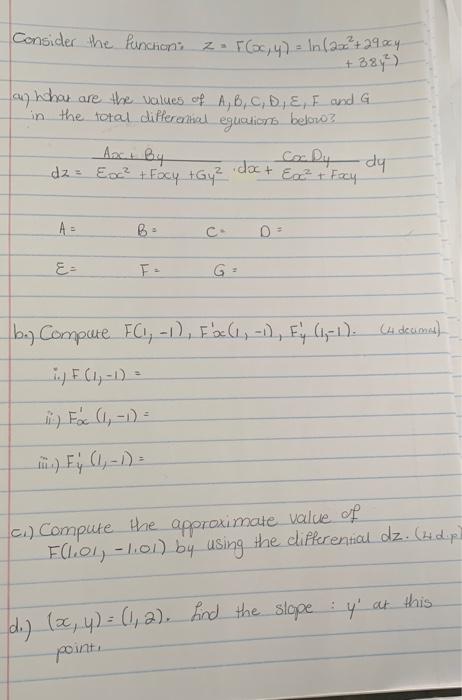 Consider the function: z = F(x,y) = ln(2x²+29xy
+ 38y²)
a.) what are the values of A,B,C,D,E,F and G
in the total differential equations below?
dz = Ax+By / Ex² + Fxy + Gy² . dx + Cx Dy / Ex² + Fxy dy
A = B = C = D =
E = F = G =
b.) Compute F(1,-1), F'x(1,-1), F'y (1,-1). (4 decimal)
i.) F(1,-1) =
ii.) F'x (1,-1) =
iii.) F'y (1,-1) =
c.) Compute the approximate value of
F(1.01, -1.01) by using the differential dz. (4 d.p)
d.) (x,y) = (1,2). find the slope : y' at this
point.